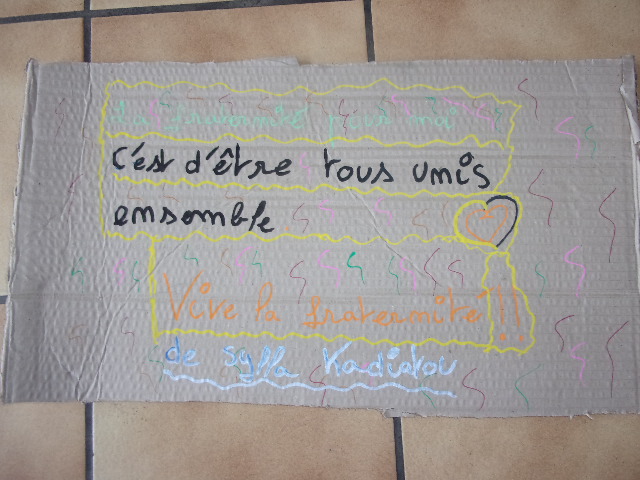 La fraternité pour moi
c'est d'être tous unis
ensemble
Vive la fraternité !!
de Sylla Kadiatou